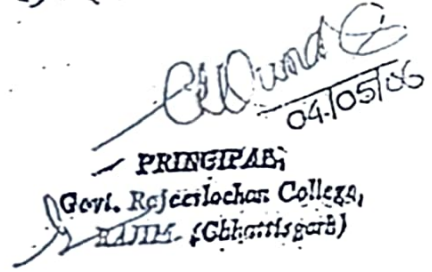 04/05/06
PRINCIPAL,
Govt. Rajeevlochan College,
RAJIM (Chhattisgarh)